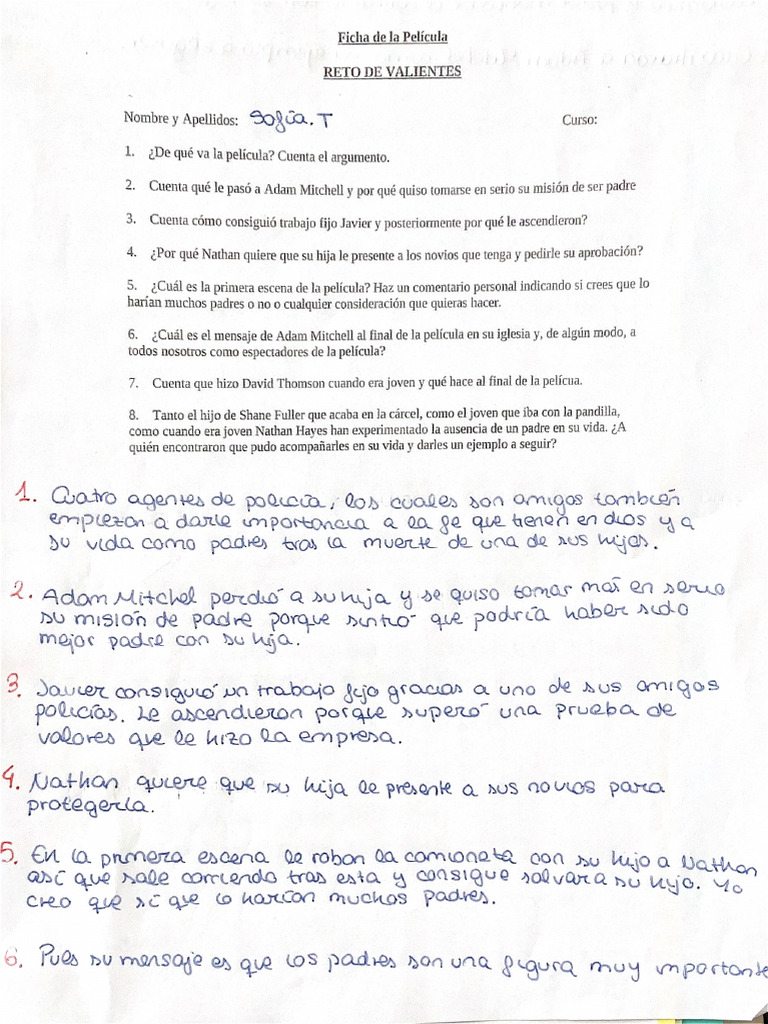 Ficha de la Película
RETO DE VALIENTES
Nombre y Apellidos: Sofía.T Curso:
1. ¿De qué va la película? Cuenta el argumento.
2. Cuenta qué le pasó a Adam Mitchell y por qué quiso tomarse en serio su misión de ser padre
3. Cuenta cómo consiguió trabajo fijo Javier y posteriormente por qué le ascendieron?
4. ¿Por qué Nathan quiere que su hija le presente a los novios que tenga y pedirle su aprobación?
5. ¿Cuál es la primera escena de la película? Haz un comentario personal indicando si crees que lo
harían muchos padres o no o cualquier consideración que quieras hacer.
6. ¿Cuál es el mensaje de Adam Mitchell al final de la película en su iglesia y, de algún modo, a
todos nosotros como espectadores de la película?
7. Cuenta que hizo David Thomson cuando era joven y qué hace al final de la pelícua.
8. Tanto el hijo de Shane Fuller que acaba en la cárcel, como el joven que iba con la pandilla,
como cuando era joven Nathan Hayes han experimentado la ausencia de un padre en su vida. ¿A
quién encontraron que pudo acompañarles en su vida y darles un ejemplo a seguir?
1. Cuatro agentes de policía, los cuales son amigos también
empiezan a darle importancia a la fe que tienen en dios y a
su vida como padres tras la muerte de una de sus hijas.
2. Adam Mitchel perdió a su hija y se quiso tomar más en serio
su misión de padre porque sintió que podría haber sido
mejor padre con su hija.
3. Javier consiguió un trabajo fijo gracias a uno de sus amigos
policías. Le ascendieron porque superó una prueba de
valores que le hizo la empresa.
4. Nathan quiere que su hija le presente a sus novios para
protegerla.
5. En la primera escena le roban la camioneta con su hijo a Nathan
así que sale corriendo tras esta y consigue salvar a su hijo. Yo
creo que sí que lo harían muchos padres.
6. Pues su mensaje es que los padres son una figura muy importante